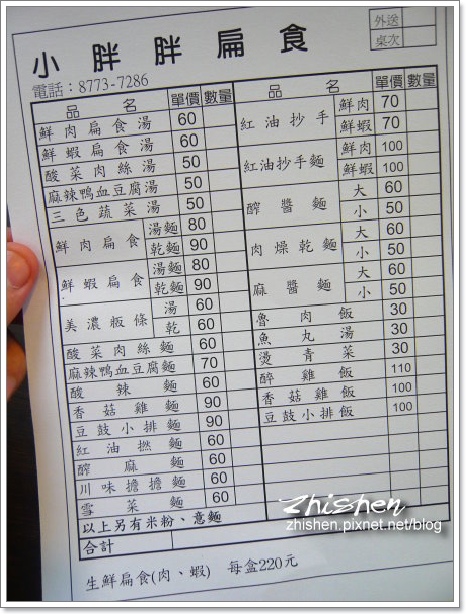 小胖胖扁食
外送
桌次
電話：8773-7286
品名 單價 數量
鮮肉扁食湯 60
鮮蝦扁食湯 60
酸菜肉絲湯 50
麻辣鴨血豆腐湯 50
三色蔬菜湯 50
鮮肉扁食 湯麵 80
乾麵 90
鮮蝦扁食 湯麵 80
乾麵 90
美濃粄條 湯 60
乾 60
酸菜肉絲麵 60
麻辣鴨血豆腐麵 70
酸辣麵 60
香菇雞麵 90
豆鼓小排麵 90
紅油撚麵 60
醡麻麵 60
川味擔擔麵 60
雪菜麵 60
以上另有米粉、意麵
合計
品名 單價 數量
紅油抄手 鮮肉 70
鮮蝦 70
紅油抄手麵 鮮肉 100
鮮蝦 100
醡醬麵 大 60
小 50
肉燥乾麵 大 60
小 50
麻醬麵 大 60
小 50
魯肉飯 30
魚丸湯 30
燙青菜 30
醉雞飯 110
香菇雞飯 100
豆鼓小排飯 100
生鮮扁食(肉、蝦) 每盒220元
Zhishen
zhishen.pixnet.net/blog